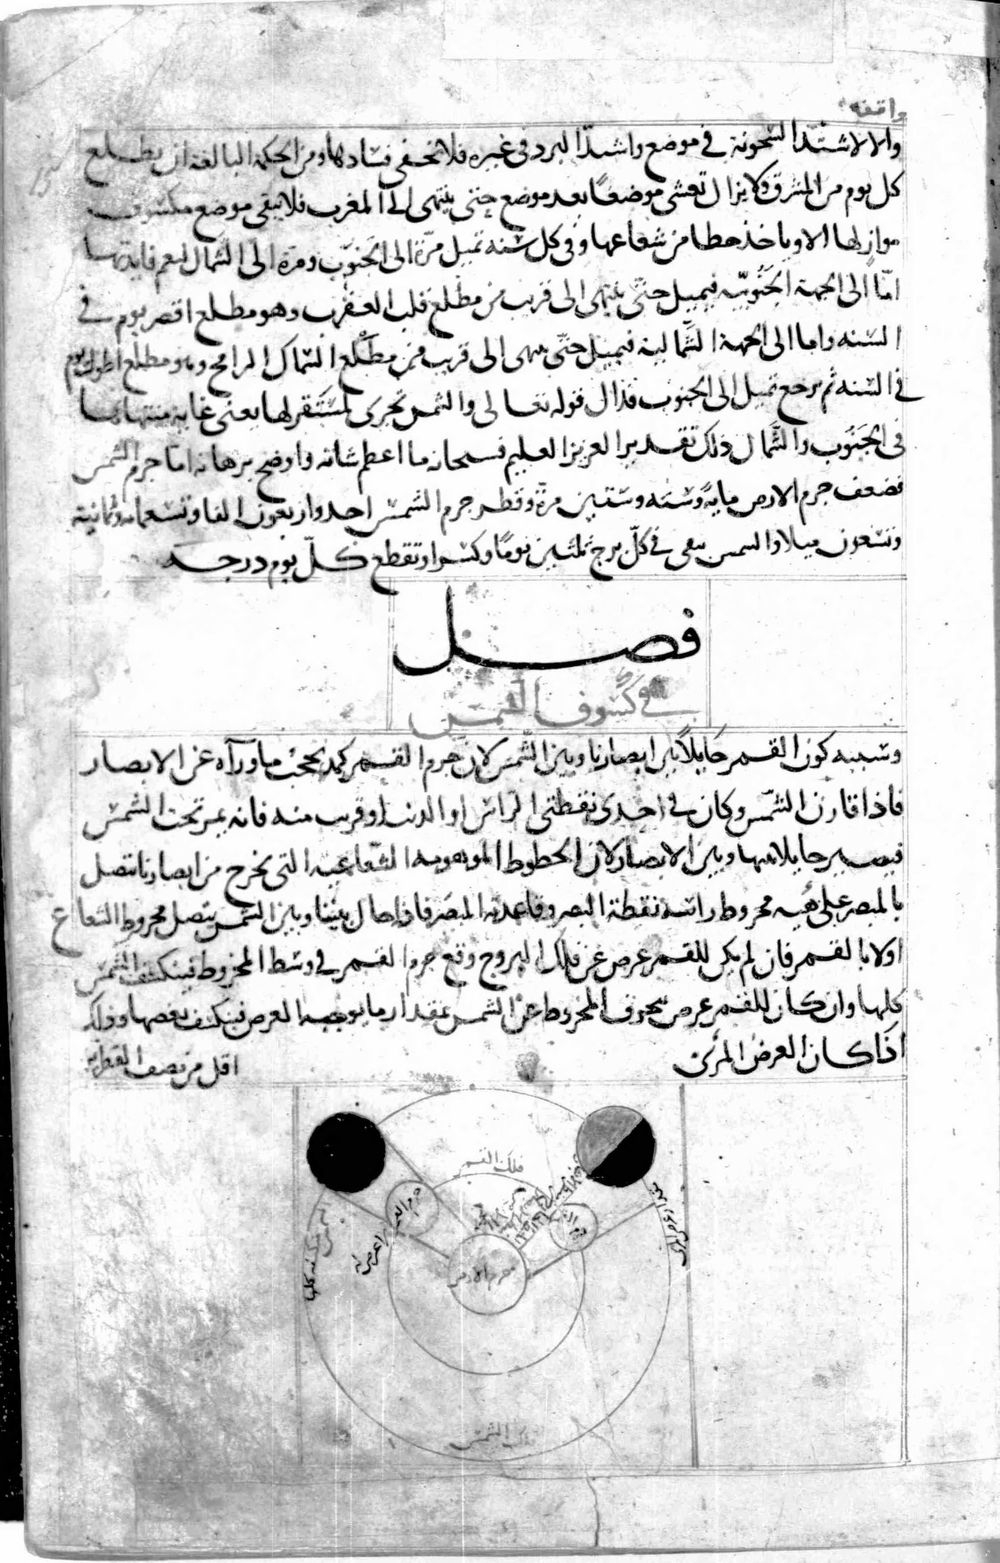 واقفة
والا لاشتد السخونة في موضع واشتد البرد في غيره فلا تخفى فسادهما ومن الحكمة البالغة ان يطلع
كل يوم من المشرق ولا يزال تغشى موضعًا بعد موضع حتى ينتهى الى المغرب فلا يبقى موضع مكشوف
مواز لها الا وياخذ حظا من شعاعها وفى كل سنه تميل مرّة الى الجَنوب ومرة الى الشمال ليعم فايدتها
امّا الى الجهة الجَنُوبيّه فيميل حتّى ينتهى الى قريب من مطلع قلب العقرب وهو مطلع اقصر يوم فى
السّنه واما الى الجهة الشَّمالية فيميل حتّى ينتهى الى قريب من مطْلع السّماك الرامح وهو مطلع اطول يوم
فى السّنه ثم يرجع تميل الى الجنوب فذا قوله تعالى والشمس تجرى لمسْتَقر لها يعنى غاية منتهاها
فى الجَنُوب والشَّمال ذلك تقدير العزيز العليم فسبحانه ما اعظم شانه واوضح برهانه امّا جرم الشمس
فضعف جرم الارض ماية وستّه وستين مرّة وقطر جرم الشمس احد واربعون الفا وتسعمايه وثمانية
وتسعون ميلا والشمس تبقى فى كلّ برج ثلثين يومًا وكسرا وتقطع كلّ يوم درجة
فصل
فى كسُوف الشمس
وسببه كون القمر حَايلاً بين ابصارنا وبين الشّمس لانّ جرم القمر كمد يحجب ما ورآه عن الابصار
فاذا قارن الشمّس وكان فى احدى نقطتى الراس او الذنب او قريب منه فانه يمر تحت الشمس
فيصير حايلا بينها وبين الابصار لان الخطوط الموهومه الشّعاعيه التى تخرج من ابصارنا تتصل
بالمبصر على هيه مخروط راسه نقطة البصر وقاعدته المبصَر فاذا حال بيننا وبين الشمس يتصل مخروط الشعاع
اولا بالقمر فان لم يكن للقمر عرض عن فلك البروج وقع جرم القمر فى وسط المخروط فينكسف الشمس
كلها وان كان للقمر عرض يحرف المخروط عن الشمس بمقدار ما يوجبه العرض فينكسف بعضها وذلك
اذا كان العرض المرئى
اقل من نصف القطرين
فلك القمر
جرم القمر
القمر
جرم الارض
لا عرض له
الشمس منكسفة كلها
فلك الشمس